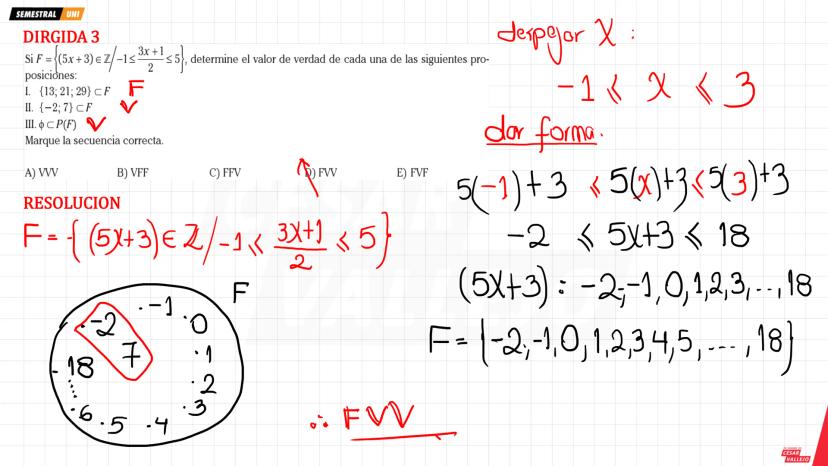 SEMESTRAL UNI
DIRGIDA 3
Si F = {(5x + 3) ∈ ℤ / −1 ≤ (3x + 1)/2 ≤ 5}, determine el valor de verdad de cada una de las siguientes pro-
posiciones:
I. {13; 21; 29} ⊂ F F
II. {−2; 7} ⊂ F V
III. ϕ ⊂ P(F) V
Marque la secuencia correcta.
A) VVV B) VFF C) FFV D) FVV E) FVF
RESOLUCION
F = { (5x+3) ∈ ℤ / −1 ≤ (3x+1)/2 ≤ 5 }
F
−2
−1
0
1
2
3
4
5
6
18
7
despejar X :
−1 ≤ x ≤ 3
dar forma.
5(−1)+3 ≤ 5(x)+3 ≤ 5(3)+3
−2 ≤ 5x+3 ≤ 18
(5x+3) : −2,−1,0,1,2,3,...,18
F = {−2,−1,0,1,2,3,4,5, ....,18}
∴ FVV
CESAR
VALLEJO